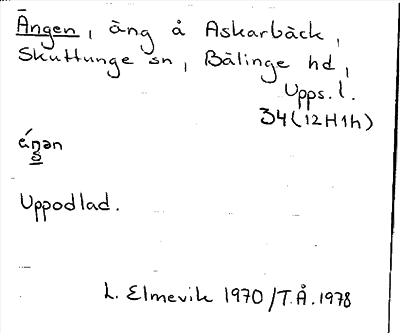 Ängen, äng å Askarbäck,
Skuttunge sn, Bälinge hd,
Upps. l.
34(12H1h)
Uppodlad.
L. Elmevik 1970/T.Å.1978